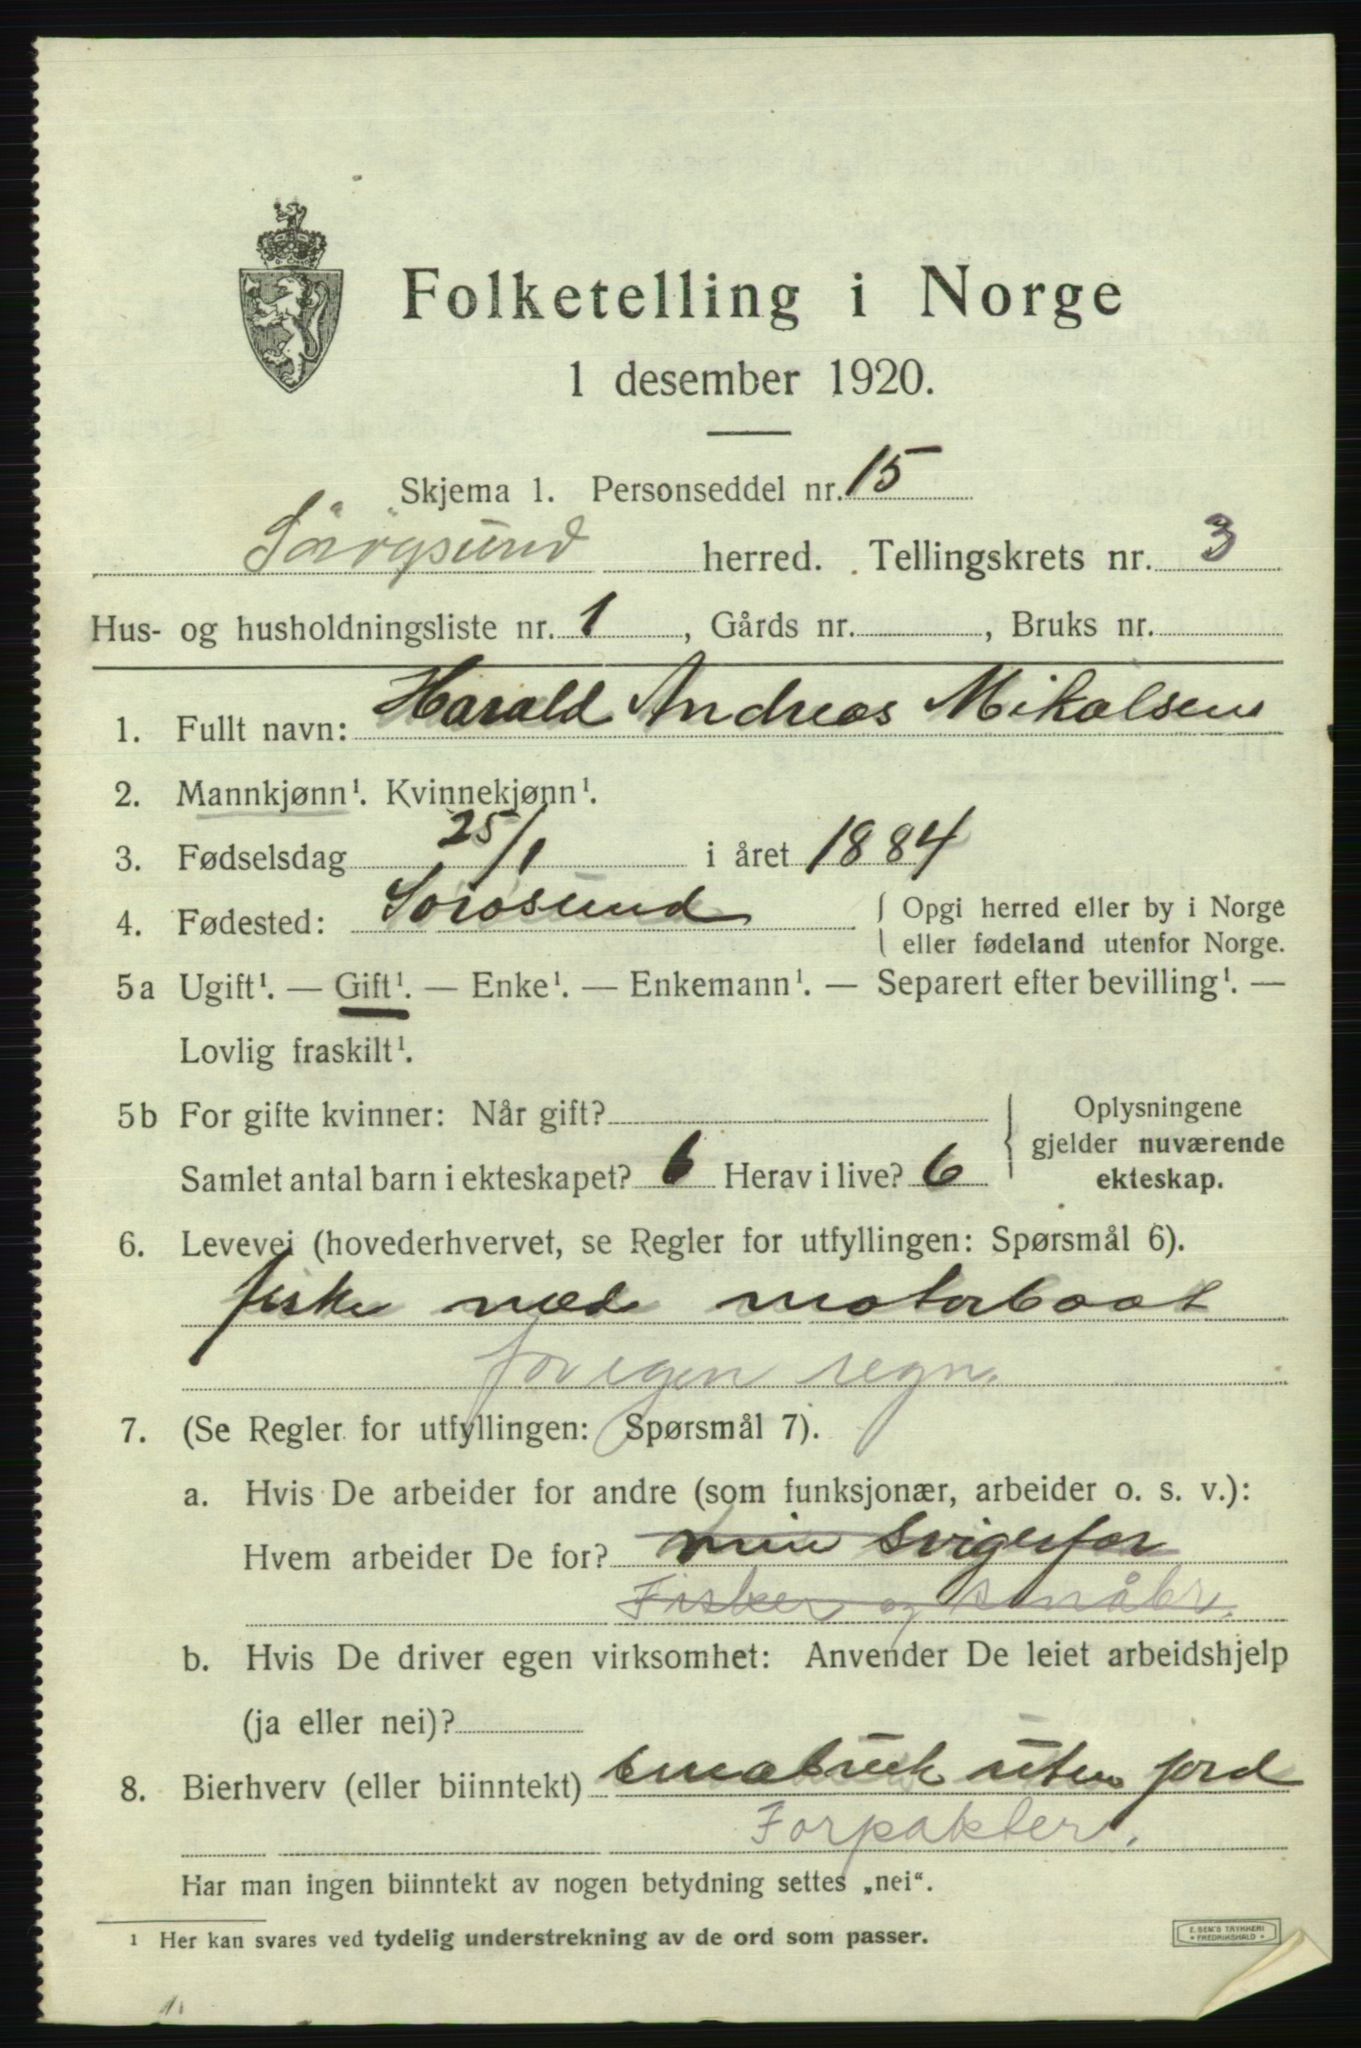 Folketelling i Norge
1 desember 1920.
Skjema 1. Personseddel nr. 15
Sørøysund herred. Tellingskrets nr. 3
Hus- og husholdningsliste nr. 1, Gårds nr. , Bruks nr.
1. Fullt navn: Harald Andreas Mikalsen
2. Mannkjønn¹. Kvinnekjønn¹.
3. Fødselsdag 25/1 i året 1884
4. Fødested: Sørøsund { Opgi herred eller by i Norge
eller fødeland utenfor Norge.
5a Ugift¹. — Gift¹. — Enke¹. — Enkemann¹. — Separert efter bevilling¹. —
Lovlig fraskilt¹.
5b For gifte kvinner: Når gift? { Oplysningene
gjelder nuværende
Samlet antal barn i ekteskapet? 6 Herav i live? 6 ekteskap.
6. Levevei (hovederhvervet, se Regler for utfyllingen: Spørsmål 6).
fiske med motorbaat
for egen regn.
7. (Se Regler for utfyllingen: Spørsmål 7).
a. Hvis De arbeider for andre (som funksjonær, arbeider o. s. v.):
Hvem arbeider De for? min svigerfar
Fisker og småbr.
b. Hvis De driver egen virksomhet: Anvender De leiet arbeidshjelp
(ja eller nei)?
8. Bierhverv (eller biinntekt) smabruk uten jord
Forpakter.
Har man ingen biinntekt av nogen betydning settes „nei“.
¹ Her kan svares ved tydelig understrekning av de ord som passer.
E. SEM'S TRYKKERI
FREDRIKSHALD